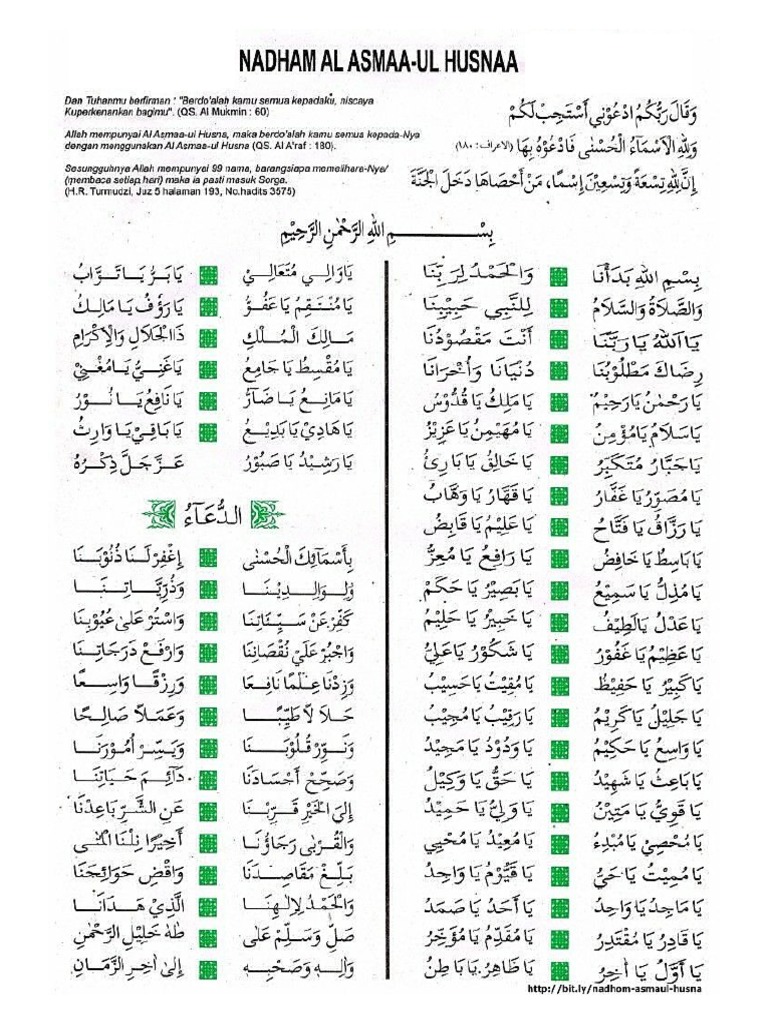 NADHAM AL ASMAA-UL HUSNAA
Dan Tuhanmu berfirman : "Berdo'alah kamu semua kepadaku, niscaya
Kuperkenankan bagimu". (QS. Al Mukmin : 60)
Allah mempunyai Al Asmaa-ul Husna, maka berdo'alah kamu semua kepada-Nya
dengan menggunakan Al Asmaa-ul Husna (QS. Al A'raf : 180).
Sesungguhnya Allah mempunyai 99 nama, barangsiapa memelihara-Nya/
(membaca setiap hari) maka ia pasti masuk Sorga.
(H.R. Turmudzi, Juz 5 halaman 193, No.hadits 3575)
وَقَالَ رَبُّكُمُ ادْعُوْنِي أَسْتَجِبْ لَكُمْ
وَلِلّٰهِ الْأَسْمَاءُ الْحُسْنٰى فَادْعُوْهُ بِهَا (الاعراف: ١٨٠)
إِنَّ لِلّٰهِ تِسْعَةً وَتِسْعِيْنَ إِسْمًا، مَنْ أَحْصَاهَا دَخَلَ الْجَنَّةَ
بِسْمِ اللهِ الرَّحْمٰنِ الرَّحِيْمِ
بِسْمِ اللهِ بَدَأْنَا وَالْحَمْدُ لِرَبِّنَا
وَالصَّلَاةُ وَالسَّلَامُ لِلنَّبِيِّ حَبِيْبِنَا
يَا اَللهُ يَا رَبَّنَا أَنْتَ مَقْصُوْدُنَا
رِضَاكَ مَطْلُوْبُنَا دُنْيَانَا وَأُخْرَانَا
يَا رَحْمٰنُ يَا رَحِيْمُ يَا مَلِكُ يَا قُدُّوْسُ
يَا سَلَامُ يَا مُؤْمِنُ يَا مُهَيْمِنُ يَا عَزِيْزُ
يَا جَبَّارُ مُتَكَبِّرُ يَا خَالِقُ يَا بَارِئُ
يَا مُصَوِّرُ يَا غَفَّارُ يَا قَهَّارُ يَا وَهَّابُ
يَا رَزَّاقُ يَا فَتَّاحُ يَا عَلِيْمُ يَا قَابِضُ
يَا بَاسِطُ يَا خَافِضُ يَا رَافِعُ يَا مُعِزُّ
يَا مُذِلُّ يَا سَمِيْعُ يَا بَصِيْرُ يَا حَكَمْ
يَا عَدْلُ يَا لَطِيْفُ يَا خَبِيْرُ يَا حَلِيْمُ
يَا عَظِيْمُ يَا غَفُوْرُ يَا شَكُوْرُ يَا عَلِيُّ
يَا كَبِيْرُ يَا حَفِيْظُ يَا مُقِيْتُ يَا حَسِيْبُ
يَا جَلِيْلُ يَا كَرِيْمُ يَا رَقِيْبُ يَا مُجِيْبُ
يَا وَاسِعُ يَا حَكِيْمُ يَا وَدُوْدُ يَا مَجِيْدُ
يَا بَاعِثُ يَا شَهِيْدُ يَا حَقُّ يَا وَكِيْلُ
يَا قَوِيُّ يَا مَتِيْنُ يَا وَلِيُّ يَا حَمِيْدُ
يَا مُحْصِيْ يَا مُبْدِءُ يَا مُعِيْدُ يَا مُحْيِي
يَا مُمِيْتُ يَا حَيُّ يَا قَيُّوْمُ يَا وَاجِدُ
يَا مَاجِدُ يَا وَاحِدُ يَا أَحَدُ يَا صَمَدُ
يَا قَادِرُ يَا مُقْتَدِرُ يَا مُقَدِّمُ يَا مُؤَخِّرُ
يَا أَوَّلُ يَا أٰخِرُ يَا ظَاهِرُ يَا بَاطِنُ
يَا وَالِي مُتَعَالِيْ يَا بَرُّ يَا تَوَّابُ
يَا مُنْتَقِمُ يَا عَفُوُّ يَا رَؤُفُ يَا مَالِكُ
مَالِكَ الْمُلْكِ ذَا الْجَلَالِ وَالْإِكْرَامِ
يَا مُقْسِطُ يَا جَامِعُ يَا غَنِيُّ يَا مُغْنِيْ
يَا مَانِعُ يَا ضَآرُّ يَا نَافِعُ يَا نُوْرُ
يَا هَادِيْ يَا بَدِيْعُ يَا بَاقِيْ يَا وَارِثُ
يَا رَشِيْدُ يَا صَبُوْرُ عَزَّ جَلَّ ذِكْرُهُ
الدُّعَآءُ
بِأَسْمَائِكَ الْحُسْنٰى إِغْفِرْ لَنَا ذُنُوْبَنَا
وَلِوَالِدِيْنَا وَذُرِّيَّاتِنَا
كَفِّرْ عَنْ سَيِّئَاتِنَا وَاسْتُرْ عَلٰى عُيُوْبِنَا
وَاجْبُرْ عَلٰى نُقْصَانِنَا وَارْفَعْ دَرَجَاتِنَا
وَزِدْنَا عِلْمًا نَافِعَا وَرِزْقًا وَاسِعًا
حَلَالًا طَيِّبًا وَعَمَلًا صَالِحًا
وَنَوِّرْ قُلُوْبَنَا وَيَسِّرْ أُمُوْرَنَا
وَصَحِّحْ أَجْسَادَنَا دَآئِمَ حَيَاتِنَا
إِلَى الْخَيْرِ قَرِّبْنَا عَنِ الشَّرِّ بَاعِدْنَا
وَالْقُرْبٰى رَجَاؤُنَا أَخِيْرًا نِلْنَا الْمُنٰى
بَلِّغْ مَقَاصِدَنَا وَاقْضِ حَوَائِجَنَا
وَالْحَمْدُ لِإِلٰهِنَا الَّذِيْ هَدَانَا
صَلِّ وَسَلِّمْ عَلٰى طٰهٰ خَلِيْلِ الرَّحْمٰنِ
وَاٰلِهِ وَصَحْبِهِ إِلٰى اٰخِرِ الزَّمَانِ
http://bit.ly/nadhom-asmaul-husna